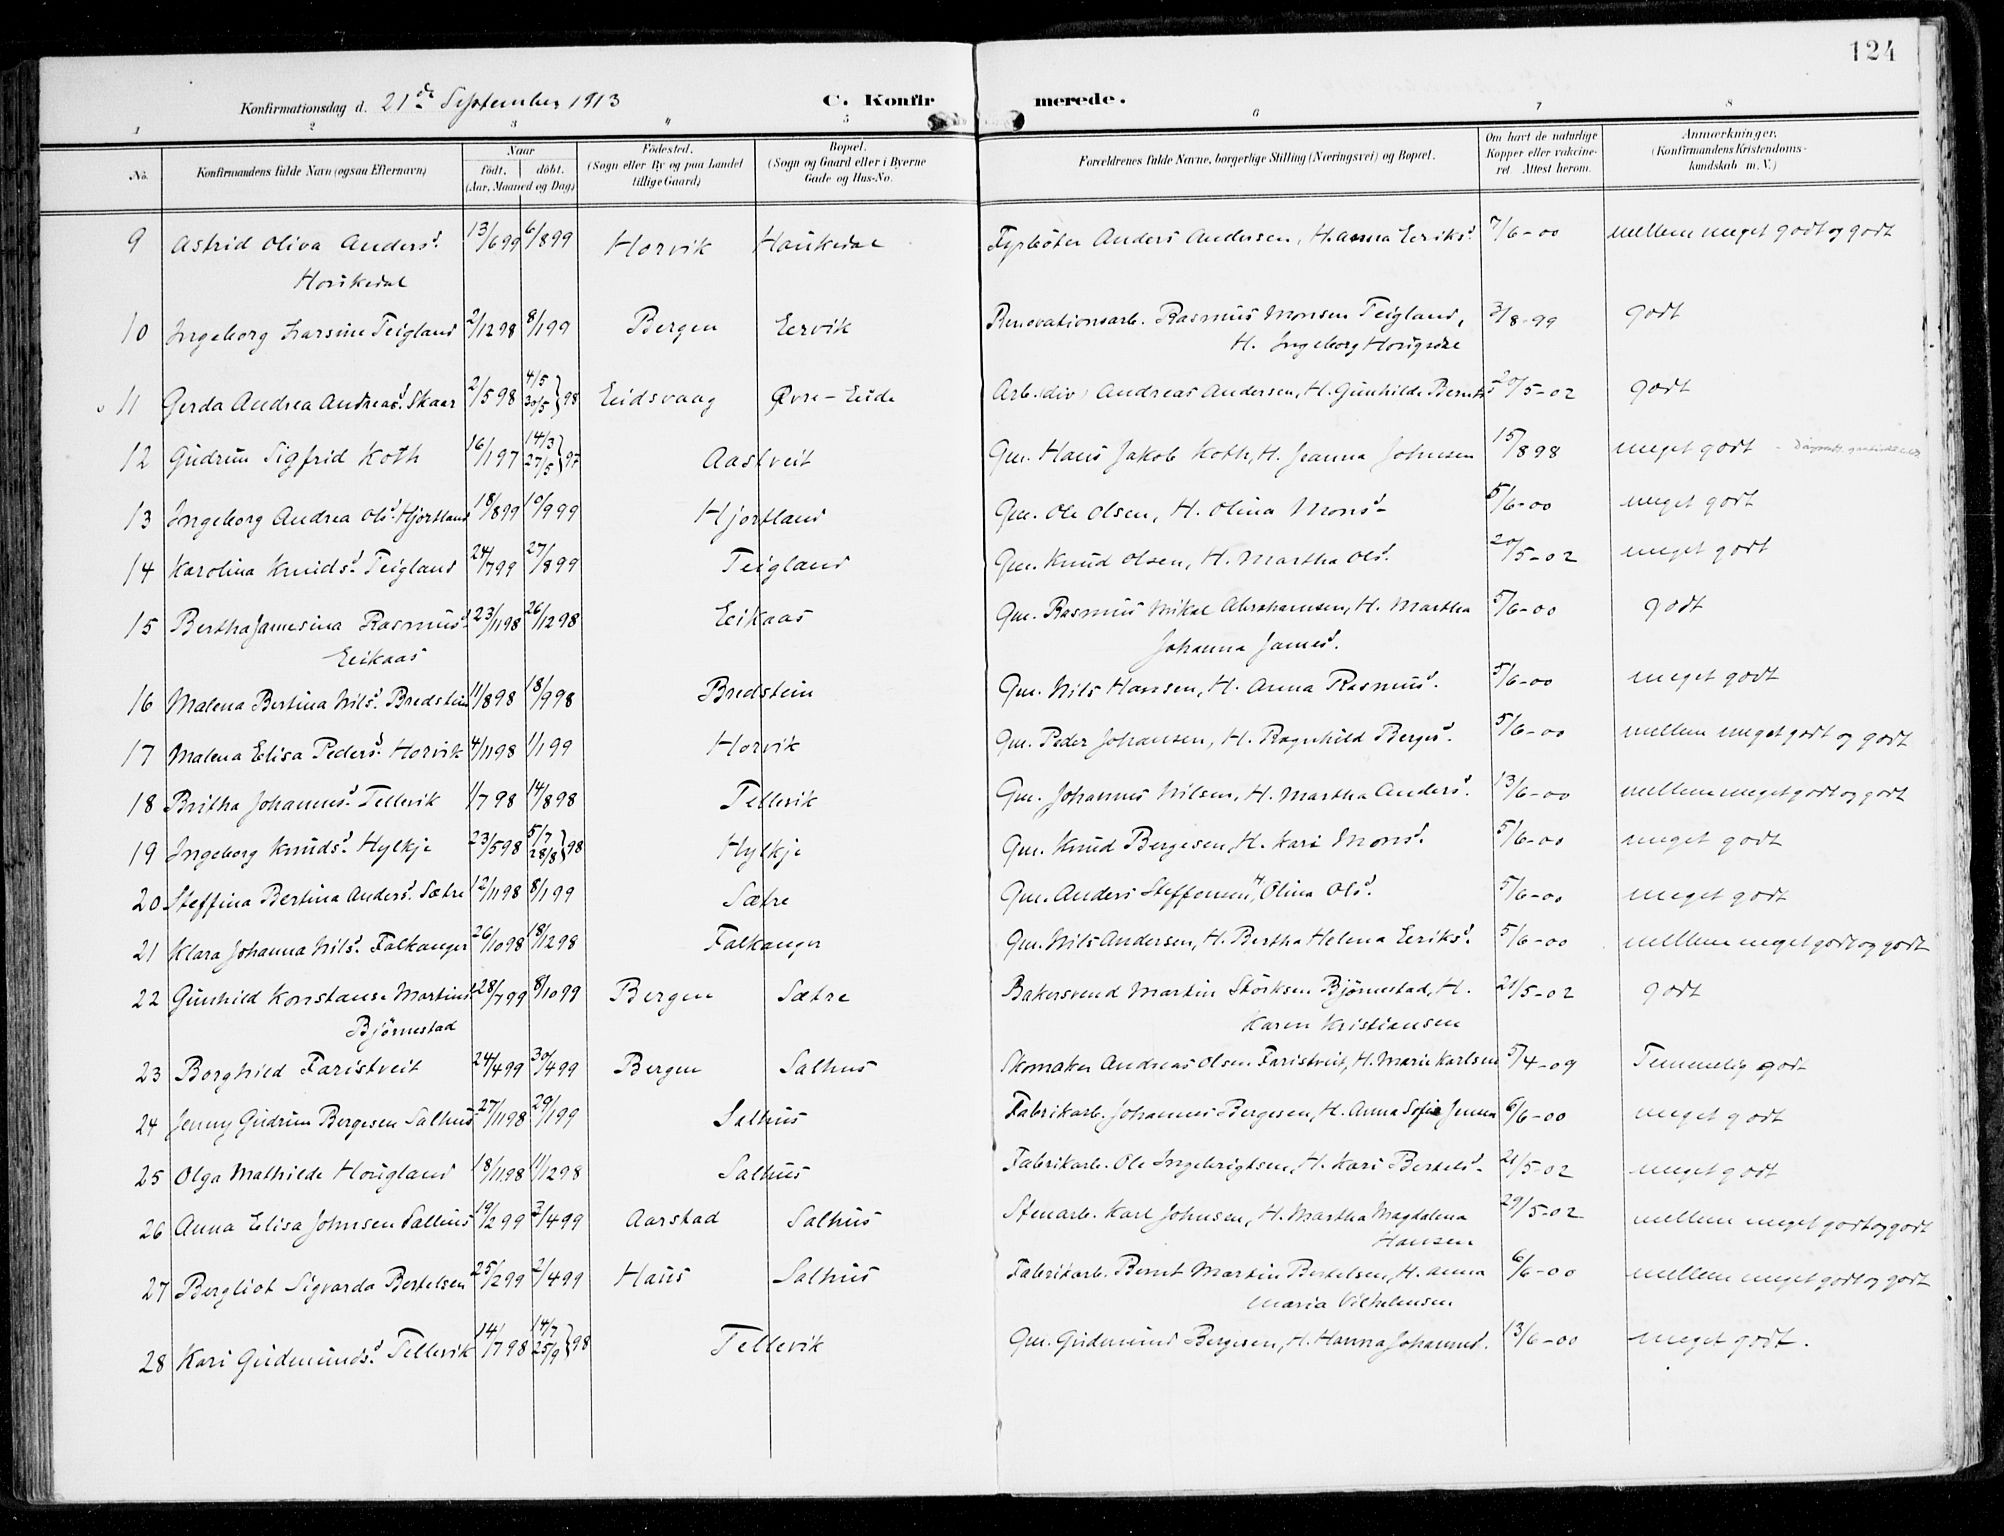 124
Konfirmationsdag d. 21de September 1913 C. Konfirmerede.
1 2 3 4 5 6 7 8
No. Konfirmandens fulde Navn (ogsaa Efternavn) Naar født. døbt. (Aar, Maaned og Dag) Fødested. (Sogn eller By og paa Landet tillige Gaard) Bopæl. (Sogn og Gaard eller i Byerne Gade og Hus-No. Forældrenes fulde Navne, borgerlige Stilling (Næringsvei) og Bopæl. Om havt de naturlige Kopper eller vaccineret. Attest herom. Anmærkninger. (Konfirmandens Kristendomskundskab m. V.)
9 Astrid Oliva Andersd. 13/6 99 6/8 99 Horvik Haukedal Fyrbøter Anders Andersen, H. Anna Eeriksd. 7/6-00 mellem meget godt og godt
Houkedal
10 Ingeborg Larsine Teigland 2/12 98 8/1 99 Bergen Eervik Renovationsarb. Rasmus Monsen Teigland, 3/8-99 godt
H. Ingeborg Hougsdre
11 Gerda Andrea Andreasd. Skaar 2/5 98 4/5 30/5 } 98 Eidsvaag Øvre-Eide Arb. (div) Andreas Andersen, H. Gunhilde Berntsd 20/5-02 godt
12 Gudrun Sigfrid Koth 16/1 97 14/3 27/5 } 97 Aastveit Gm. Hans Jakob Koth, H. Jeanna Johnsen 15/8 98 meget godt
13 Ingeborg Andrea Olsd. Hjortland 18/8 99 10/9 99 Hjortland Gm. Ole Olsen, H. Olina Monsd. 5/6-00 meget godt
14 Karolina Knudsd. Teigland 24/7 99 27/8 99 Teigland Gm. Knud Olsen, H. Martha Olsd. 20/5-02 meget godt
15 Bertha Jamesina Rasmusd. 23/11 98 26/12 98 Eeikaas Gm. Rasmus Mikal Abrahamsen, H. Martha 5/6-00 godt
Eeikaas Johanna Jamesd.
16 Malena Bertina Nilsd. Bredstein 11/8 98 18/9 98 Bredstein Gm. Nils Hansen, H. Anna Rasmusd. 5/6-00 meget godt
17 Malena Elisa Pedersd. Horvik 4/11 98 1/1 99 Horvik Gm. Peder Johansen, H. Ragnhild Bergesd. 5/6-00 mellem meget godt og godt
18 Britha Johannesd. Tellevik 1/7 98 14/8 98 Tellevik Gm. Johannes Nilsen, H. Martha Andersd. 13/6-00 mellem meget godt og godt
19 Ingeborg Knudsd. Hylkje 23/5 98 5/7 28/8 } 98 Hylkje Gm. Knud Bergesen, H. Kari Monsd. 5/6-00 meget godt
20 Steffina Bertina Andersd. Sætre 12/11 98 8/1 99 Sætre Gm. Anders Steffensen, H. Olina Olsd. 5/6-00 meget godt
21 Klara Johanna Nilsd. Falkanger 26/10 98 18/12 98 Falkanger Gm. Nils Andersen, H. Bertha Helena Eeriksd. 5/6-00 mellem meget godt og godt
22 Gunhild Konstanse Martinsd. 28/7 99 8/10 99 Bergen Sætre Bakersvend Martin Störksen Björnestad, H. 21/5-02 godt
Björnestad Karen Kristiansen
23 Borghild Faristveit 24/4 99 30/4 99 Bergen Salhus Skomaker Andreas Olsen Faristveit, H. Marie Karlsen 5/4-09 Temmelig godt
24 Jenny Gudrun Bergesen Salhus 27/11 98 29/1 99 Salhus Fabrikarb. Johannes Bergesen, H. Anna Sofie Jenna 6/6-00 meget godt
25 Olga Mathilde Hougland 18/11 98 11/12 98 Salhus Fabrikarb. Ole Ingebrigtsen, H. Kari Bertelsd. 21/5-02 meget godt
26 Anna Elisa Johnsen Salhus 19/2 99 2/4 99 Aarstad Salhus Stenarb. Karl Johnsen, H. Martha Magdalena 29/5-02 mellem meget godt og godt
Hansen
27 Bergliot Sigvarda Bertelsen 25/2 99 2/4 99 Haus Salhus Fabrikarb. Bernt Martin Bertelsen, H. Anna 6/6-00 mellem meget godt og godt
Maria Vilhelmsen
28 Kari Gudmundsd. Tellevik 14/7 98 14/7 25/9 } 98 Tellevik Gm. Gudmund Bergesen, H. Hanna Johannesd. 13/6-00 meget godt.